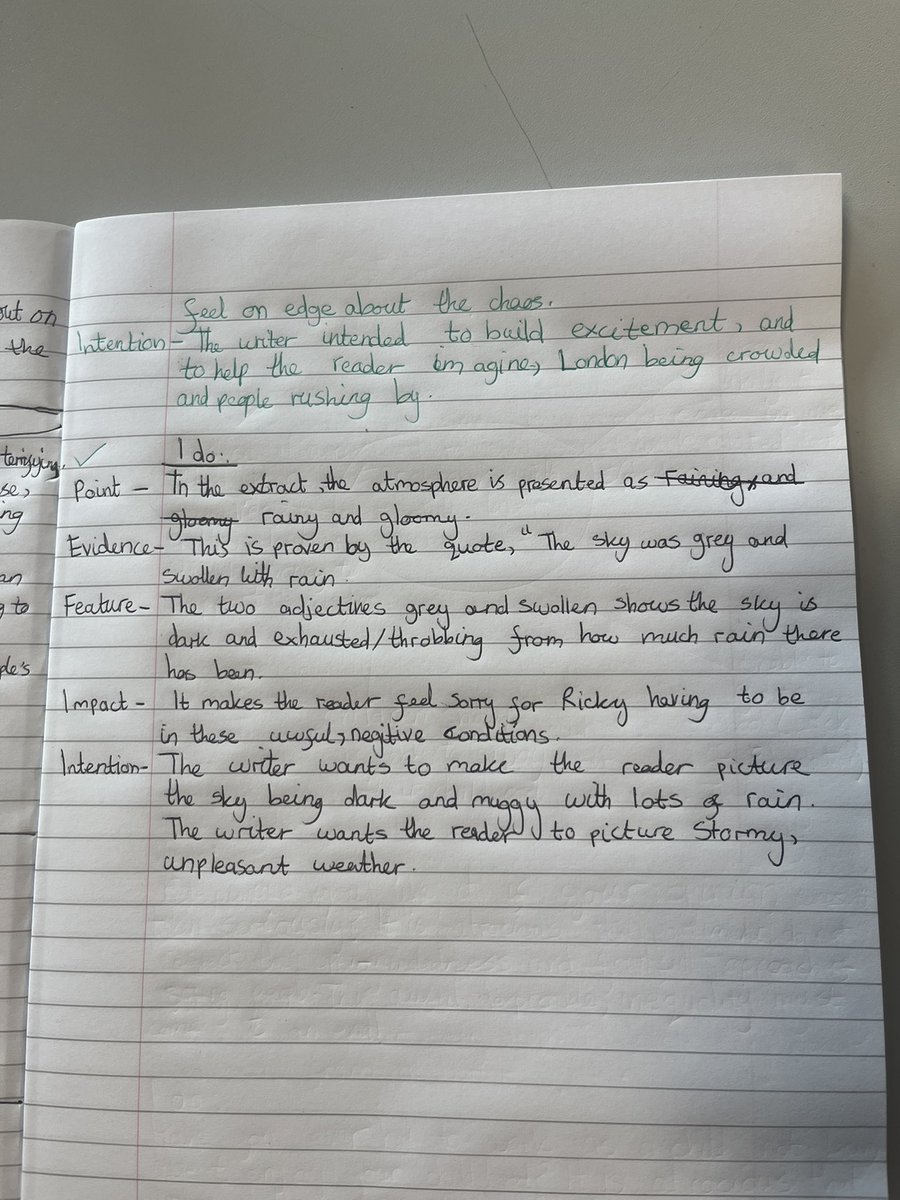 out on
the
terrifying.
se,
ng
an
g to
ple's
feel on edge about the chaos.
Intention - The writer intended to build excitement, and
to help the reader imagine, London being crowded
and people rushing by.
I do:
Point - In the extract, the atmosphere is presented as Faining, and
gloomy rainy and gloomy.
Evidence - This is proven by the quote, "The sky was grey and
swollen with rain.
Feature - The two adjectives grey and swollen shows the sky is
dark and exhausted/throbbing from how much rain there
has been.
Impact - It makes the reader feel sorry for Ricky having to be
in these awful, negitive conditions.
Intention - The writer wants to make the reader picture
the sky being dark and muggy with lots of rain.
The writer wants the reader to picture Stormy,
unpleasant weather.